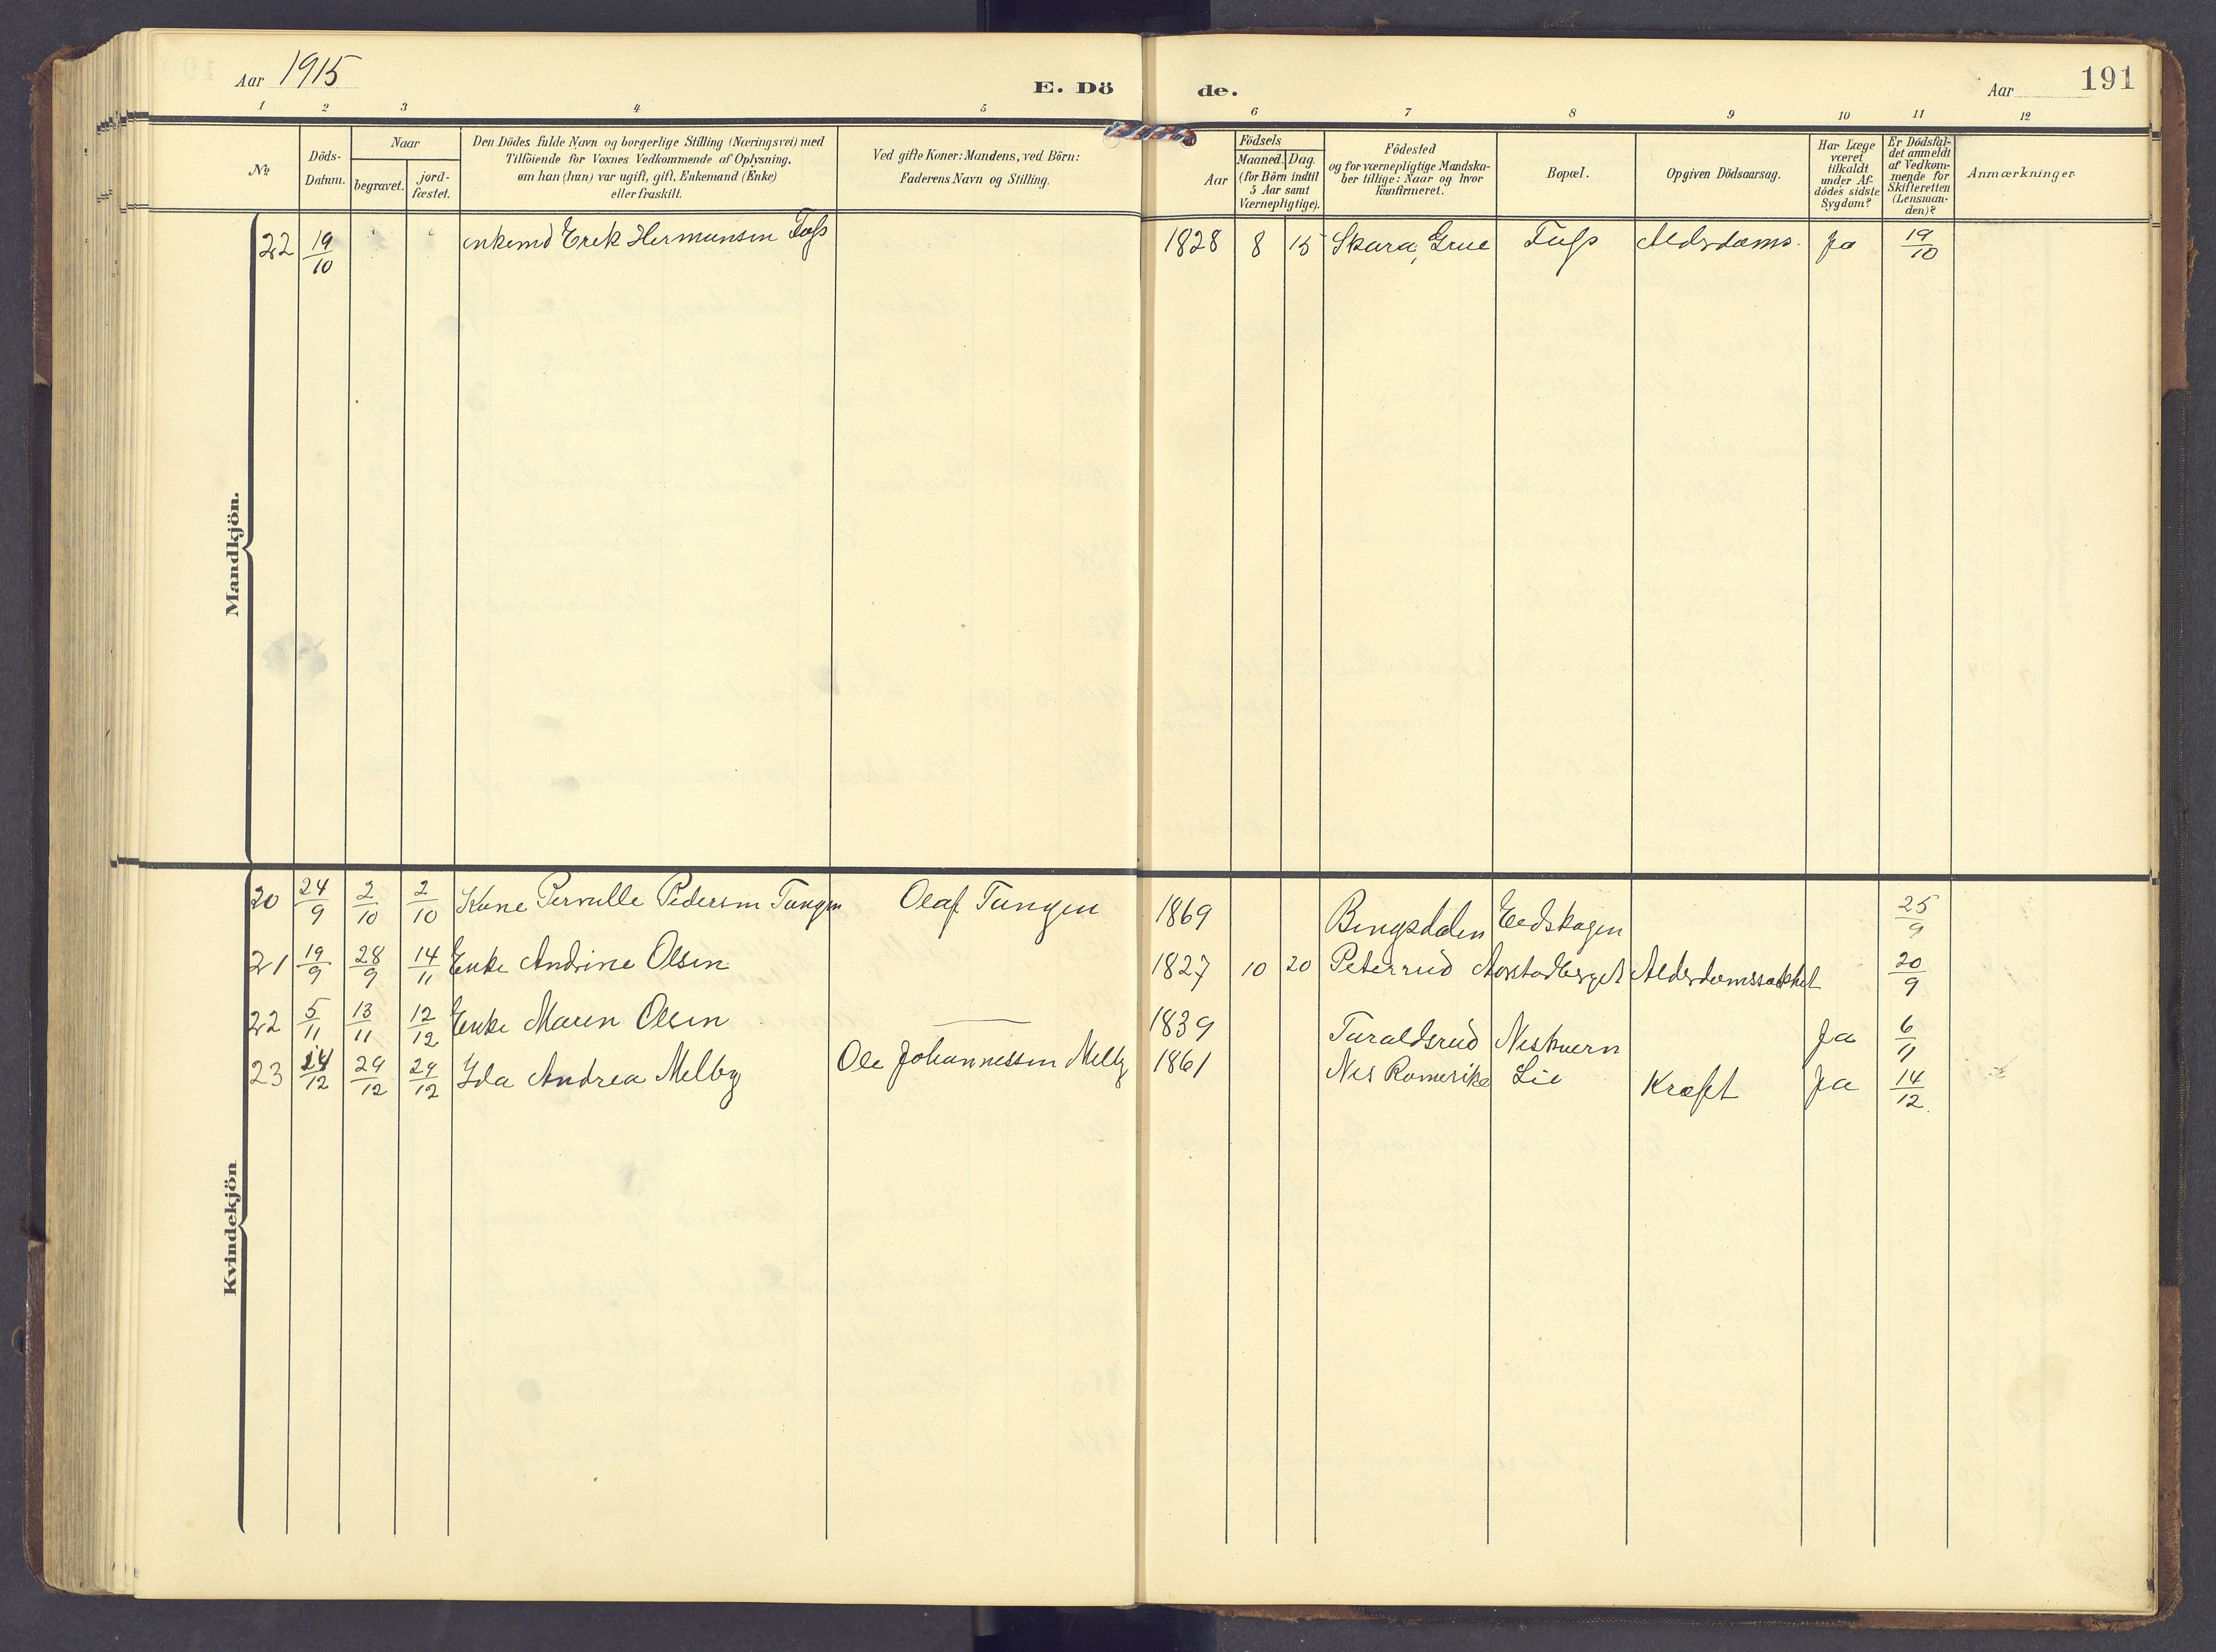 Aar 1915
E. Dö
de.
Aar
191
1 2 3 4 5 6 7 8 9 10 11 12
No
Döds-
Datum.
Naar
begravet.
jord-
fæstet.
Den Dödes fulde Navn og borgerlige Stilling (Næringsvei) med
Tilföiende for Voxnes Vedkommende af Oplysning,
om han (hun) var ugift, gift, Enkemand (Enke)
eller fraskilt.
Ved gifte Koner: Mandens, ved Börn:
Faderens Navn og Stilling.
Aar
Födsels
Maaned. Dag.
(for Börn indtil
5 Aar samt
Værnepligtige).
Födested
og for værnepligtige Mandska-
ber tillige: Naar og hvor
konfirmeret.
Bopæl.
Opgiven Dödsaarsag.
Har Læge
været
tilkaldt
under Af-
dödes sidste
Sygdom?
Er Dödsfal-
det anmeldt
af Vedkom-
mende for
Skifteretten
(Lensman-
den)?
Anmærkninger
Mandkjön.
22 19/10 Erek Hermansen 1828 8 15 Skara, Grue Alderdoms. Ja 19/10
Kvindekjön
20 24/9 2/10 2/10 Kone Pernille Pedersen Tangen Olaf Tangen 1869 Bingsdalen Eedskogen 25/9
21 19/9 28/9 14/11 Enke Andrine Olsen 1827 10 20 Peterrud Aarstadberget 20/9
22 5/11 13/11 12/12 Enke Maren Olsen — 1839 Taraldsrud Neskvern Ja 6/11
23 14/12 29/12 29/12 Ida Andrea Melby Ole Johannessen Melby 1861 Nes Romerike Lie Kræft Ja 14/12